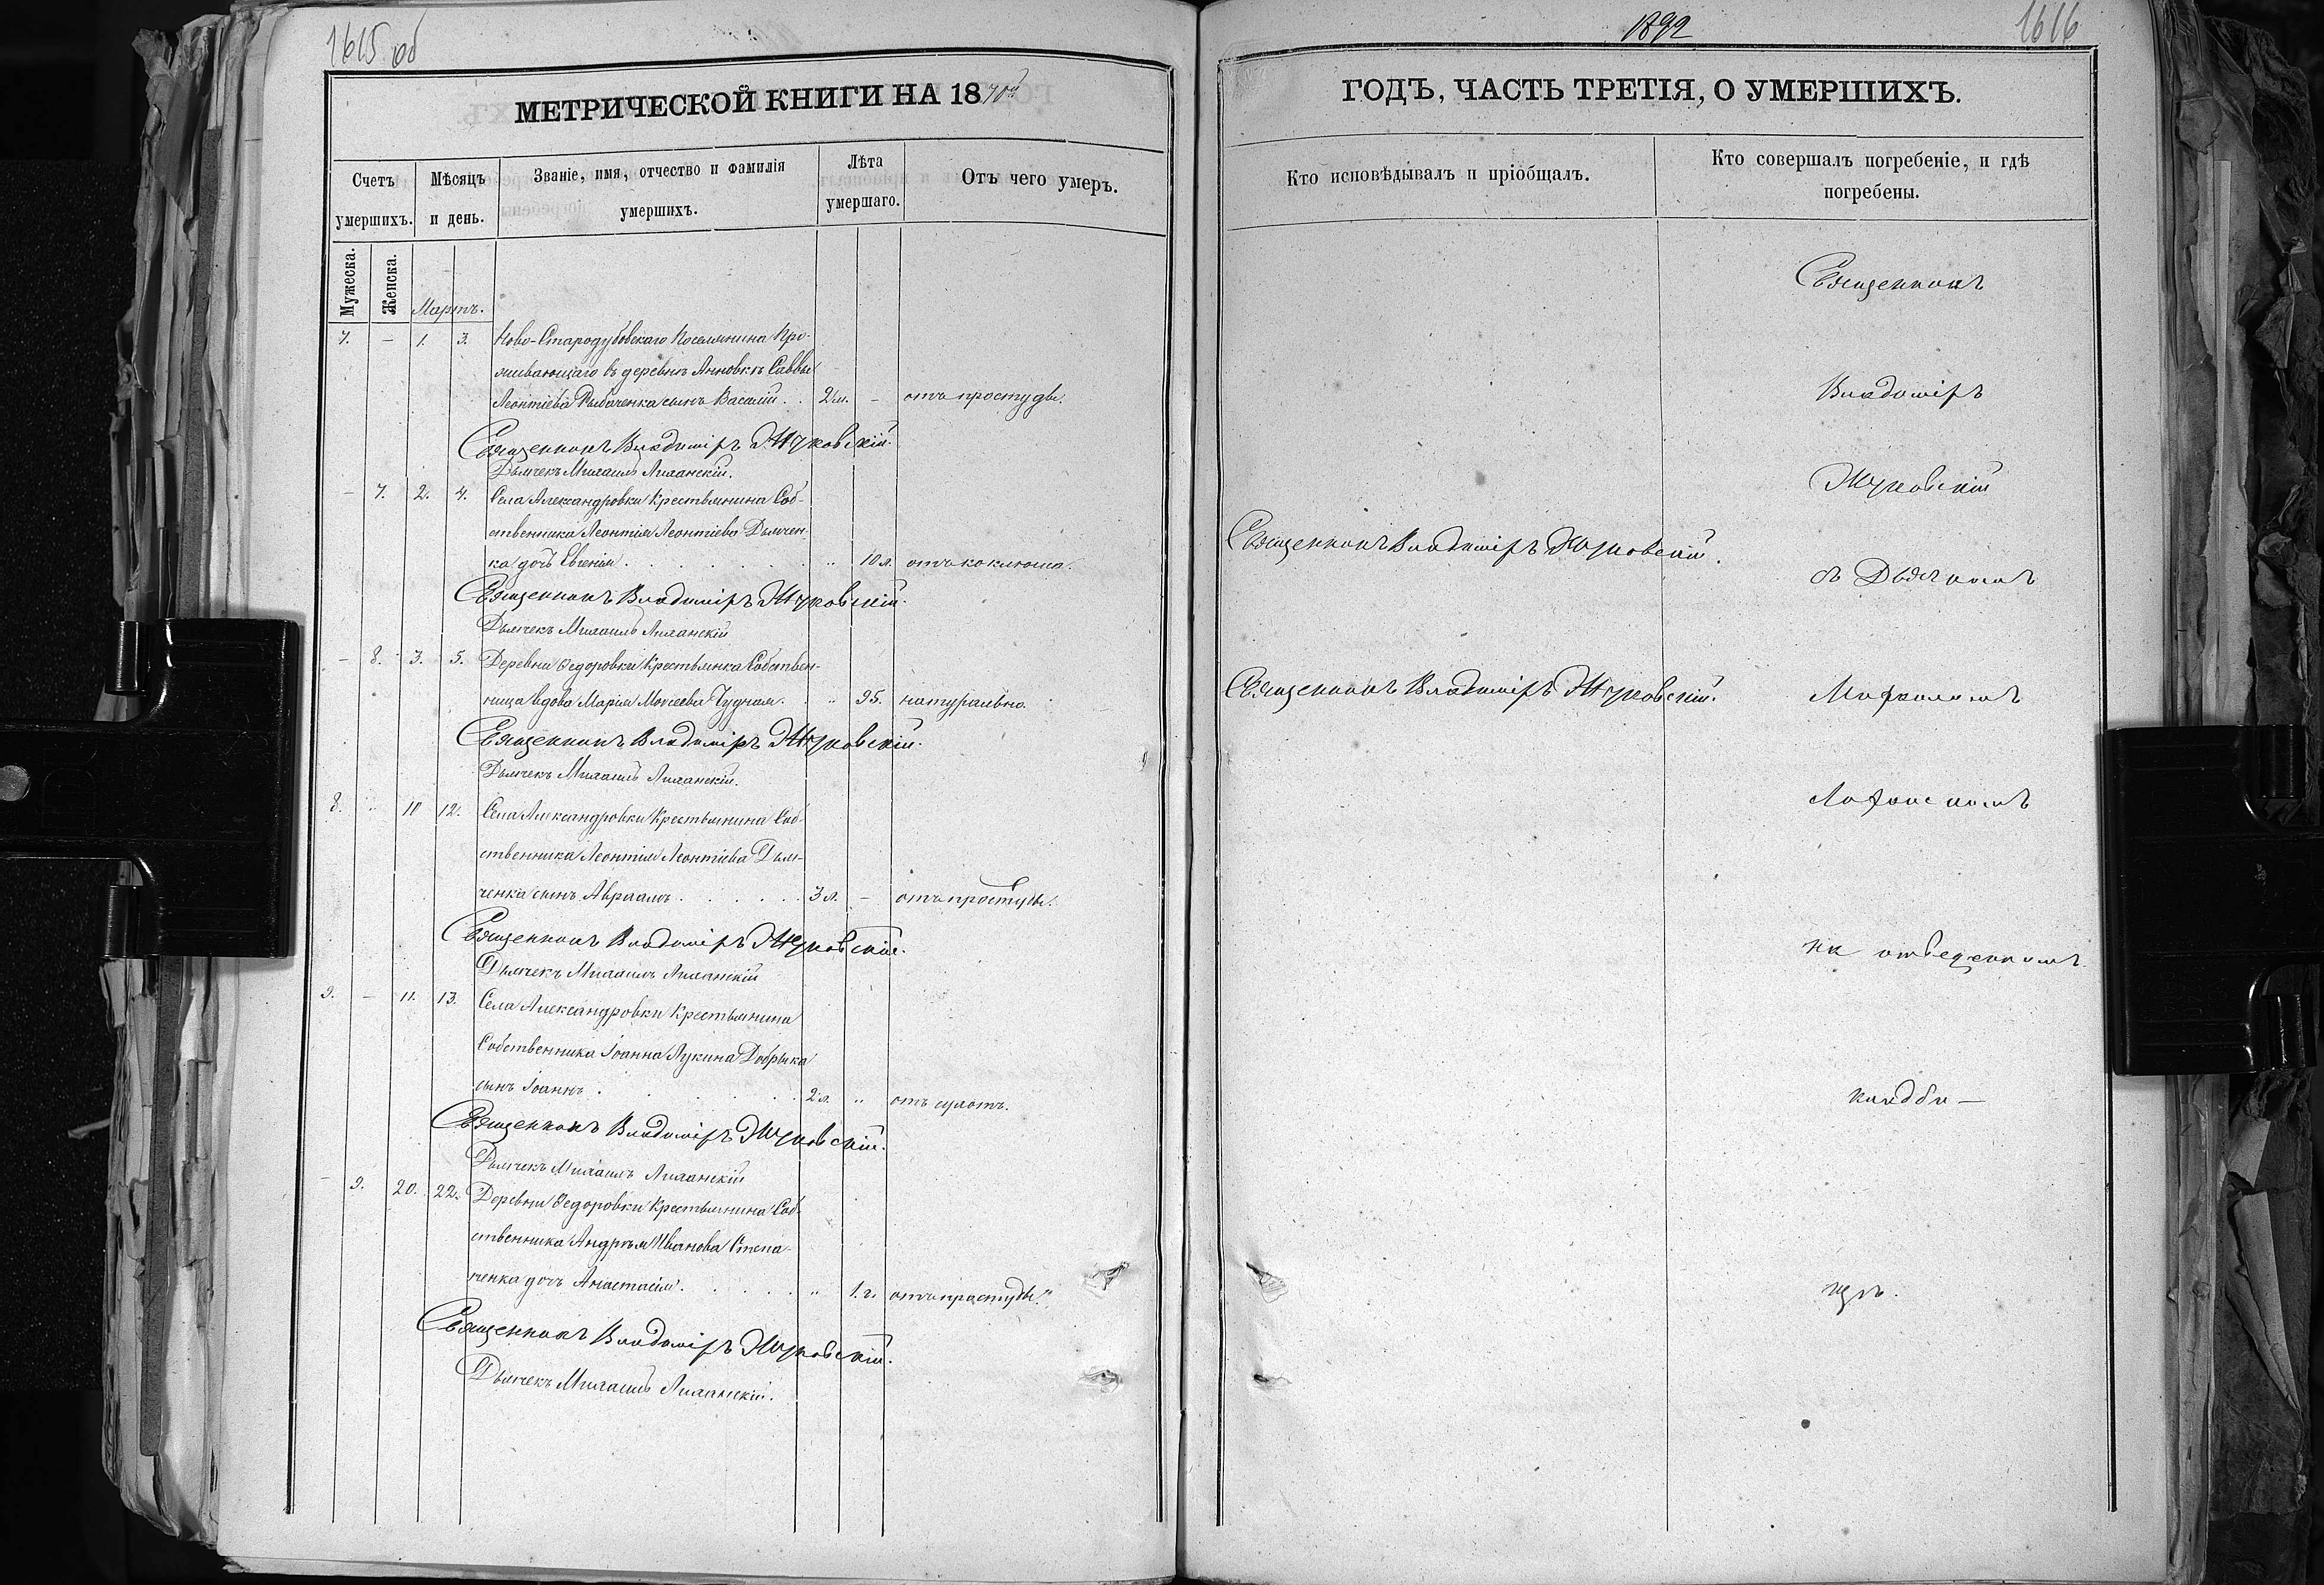 1615 об
МЕТРИЧЕСКОЙ КНИГИ НА 1870й
Счетъ умершихъ.
Мѣсяцъ и день.
Званіе, имя, отчество и фамилія умершихъ.
Лѣта умершаго.
Отъ чего умеръ.
Мужеска.
Женска.
Мартъ.
7. – 1. 3. Ново-Стародубовскаго Поселянина Про-
живающаго въ деревнѣ Анновкѣ Саввы
Леонтіева Рыбаченка сынъ Василій . . 2 м. – отъ простуды.
Священникъ Владиміръ Жуковскій.
Дьячекъ Михаилъ
– 7. 2. 4. Села Александровки Крестьянина Соб-
ственника Леонтія Леонтіева Дьячен-
ка дочь Евгенія . . . . . . . „ 10 л. отъ коклюша.
Священникъ Владиміръ Жуковскій.
Дьячекъ Михаилъ
– 8. 3. 5. Деревни Ѳедоровки Крестьянка Собствен-
ница вдова Марія Моисеева Чудная . . „ 95. натурально.
Священникъ Владиміръ Жуковскій.
Дьячекъ Михаилъ
8. „ 10 12. Села Александровки Крестьянина Соб-
ственника Леонтія Леонтіева Дья-
ченка сынъ Авраамъ . . . . . . 3 л. – отъ простуды.
Священникъ Владиміръ Жуковскій.
Дьячекъ Михаилъ
9. – 11. 13. Села Александровки Крестьянина
Собственника Іоанна Лукина Добрыка
сынъ Іоаннъ . . . . . . 2 л. „ отъ сухотъ.
Священникъ Владиміръ Жуковскій.
Дьячекъ Михаилъ
– 9. 20. 22. Деревни Ѳедоровки Крестьянина Соб-
ственника Андрея Иванова Степа-
ненка дочь Анастасія . . . . . . „ 1. г. отъ простуды.
Священникъ Владиміръ Жуковскій.
Дьячекъ Михаилъ
1892
1616
ГОДЪ, ЧАСТЬ ТРЕТІЯ, О УМЕРШИХЪ.
Кто исповѣдывалъ и пріобщалъ.
Кто совершалъ погребеніе, и гдѣ погребены.
Священникъ Владиміръ Жуковскій.
Священникъ Владиміръ Жуковскій.
Священникъ
Владиміръ
Жуковскій
съ Дьячкомъ
Михаиломъ
на отведенномъ
кладби—
щѣ.